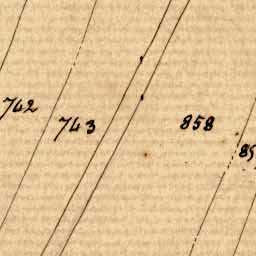 742
743
858